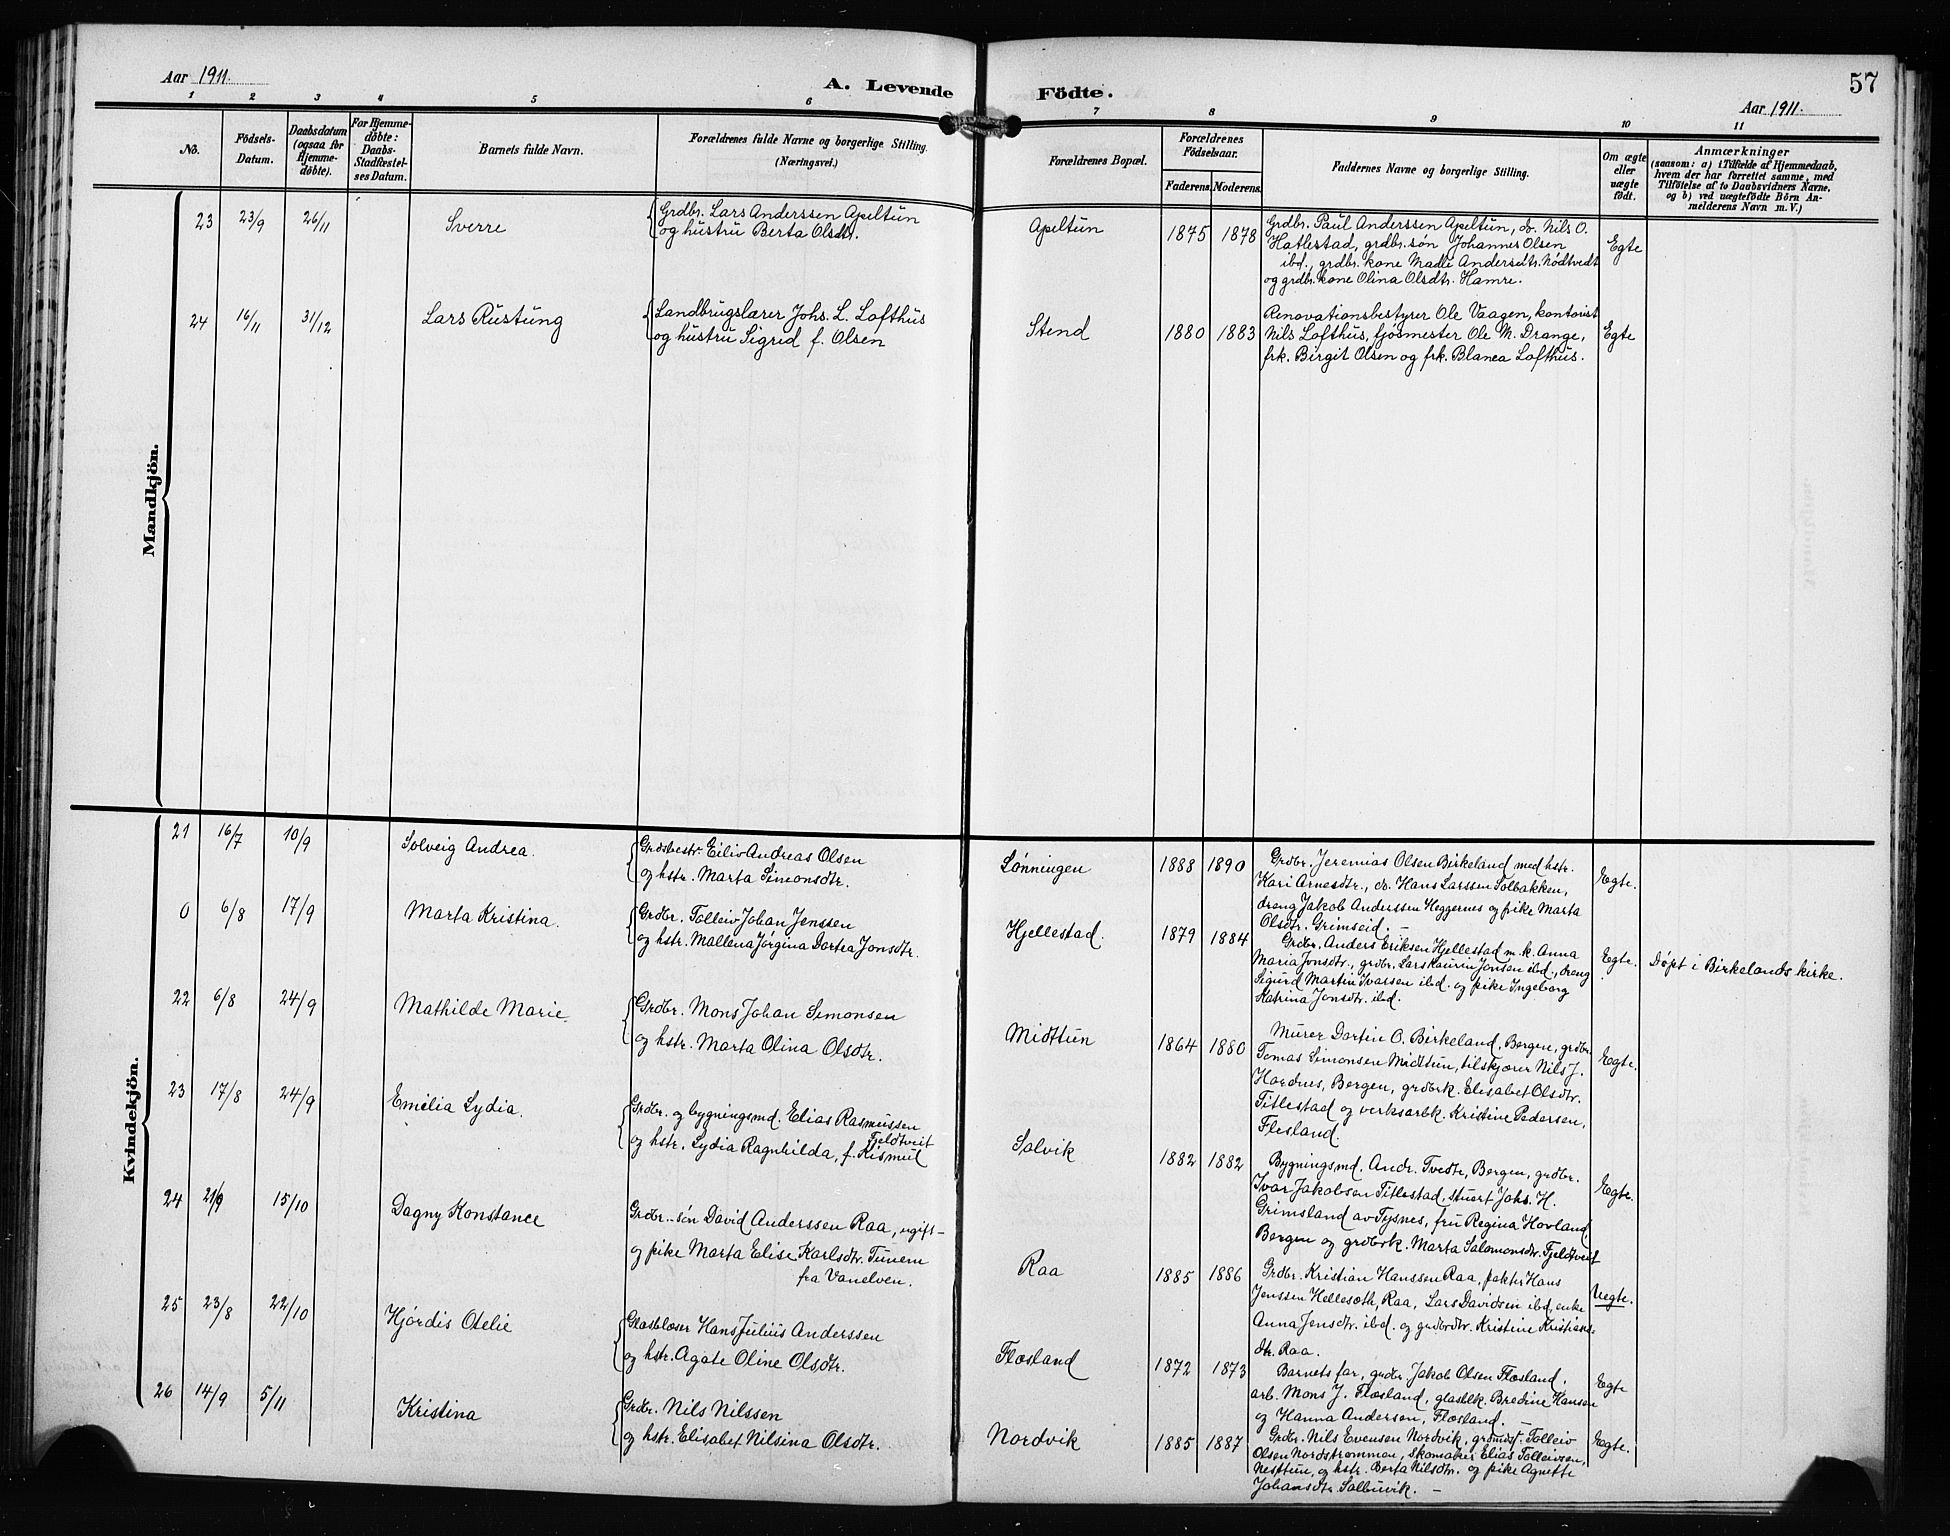 Aar 1911.
A. Levende Födte.
57
Aar 1911.
1 2 3 4 5 6 7 8 9 10 11
No.
Födsels-Datum.
Daabsdatum (ogsaa for Hjemmedöbte).
For Hjemmedöbte: Daabs-Stadfæstelses Datum.
Barnets fulde Navn.
Forældrenes fulde Navne og borgerlige Stilling.
(Næringsvei.)
Forældrenes Bopæl.
Forældrenes Födselsaar.
Faderens. Moderens.
Faddernes Navne og borgerlige Stilling.
Om ægte eller uægte födt.
Anmærkninger
(saasom: a) i Tilfælde af Hjemmedaab,
hvem der har forrettet samme, med
Tilföielse af to Daabsvidners Navne,
og b) ved uægtefödte Börn An-
melderens Navn m. V.)
Mandkjön.
23 23/9 26/11 Sverre
Grdbr. Lars Anderssen Apeltun
og hustru Berta Olsdtr.
Apeltun 1875 1878
Grdbr. Paul Anderssen Apeltun, do. Nils O.
Hatlestad, grdbr. søn Johannes Olsen
ibd., grdbr. kone Madli Andersdtr. Nødtvedt
og grdbr. kone Olina Olsdtr. Hamre.
Egte
24 16/11 31/12 Lars Rustung
Landbrugslærer Johs. L. Lofthus
og hustru Sigrid f. Olsen
Stend 1880 1883
Renovationsbestyrer Ole Vaagen, kontorist
Nils Lofthus, fjøsmester Ole M. Drange,
frk. Birgit Olsen og frk. Blanca Lofthus.
Egte
Kvindekjön.
21 16/7 10/9 Solveig Andrea.
Grdsbestr. Eiliv Andreas Olsen
og hstr. Marta Simonsdtr.
Lønningen 1888 1890
Grdbr. Jeremias Olsen Birkeland med hstr.
Kari Arnesdtr., do. Hans Larssen Solbakken,
dreng Jakob Anderssen Heggernes og pike Marta
Olsdtr. Grimseid. –
Egte.
0 6/8 17/9 Marta Kristina.
Grdbr. Tolleiv Johan Jenssen
og hstr. Mallena Jørgina Dortea Jonsdtr.
Hjellestad. 1879 1884
Grdbr. Anders Eriksen Hjellestad m. k. Anna
Maria Jonsdtr., grdbr. Lars Kaurin Jonsen ibd., dreng
Sigurd Martin Ivarssen ibd. og pike Ingeborg
Katrina Jonsdtr. ibd.
Egte.
Døpt i Birkelands kirke.
22 6/8 24/9 Mathilde Marie.
Grdbr. Mons Johan Simonsen
og hstr. Marta Olina Olsdtr.
Midttun 1864 1880
Murer Dortin O. Birkeland, Bergen, grdbr.
Tomas Simonsen Midttun, tilskjærer Nils J.
Hordnes, Bergen, grdbrk. Elisabet Olsdtr.
Titlestad og verksarbk. Kristine Pedersen,
Flesland.
Egte.
23 17/8 24/9 Emelia Lydia.
Grdbr. og bygningsmd. Elias Rasmussen
Fjeldtveit
og hstr. Lydia Ragnhilda, f. Kismul
Solvik 1882 1882
Bygningsmd. Andr. Tvedt, Bergen, grdbr.
Ivar Jakobsen Titlestad, stuert Johs. H.
Grimsland av Tysnes, fru Regina Hovland,
Bergen og grdbrk. Marta Salomonsdtr. Fjeldtveit
Egte.
24 21/9 15/10 Dagny Konstance
Grdbr.-søn David Anderssen Raa, ugift–
og pike Marta Elise Karlsdtr. Tunem
fra Vanelven.
Raa 1885 1886
Grdbr. Kristian Hanssen Raa, pakter Hans
Jenssen Hellesøth, Raa, Lars Davidsen ibd., enke
Anna Jensdtr. ibd. og grdbrdtr. Kristine Kristians-
dtr. Raa.
Uegte.
25 23/8 22/10 Hjørdis Otelie
Glasblæser Hans Julius Anderssen
og hstr. Agate Oline Olsdtr.
Flæsland 1872 1873
Barnets far, grdbr. Jakob Olsen Flæsland,
arb. Mons J. Flæsland, glasblk. Bredine Hansen
og Hanna Andersen, Flæsland. –
Egte
26 14/9 5/11 Kristina
Grdbr. Nils Nilssen
og hstr. Elisabet Nilsina Olsdtr.
Nordvik 1885 1887
Grdbr. Nils Evensen Nordvik, grdmd. Tolleiv
Olsen Nordstrømmen, skomaker Elias Tolleivsen,
Nesttun, og hstr. Berta Nilsdtr. og pike Agnette
Johansdtr. Solbuvik. –
Egte.